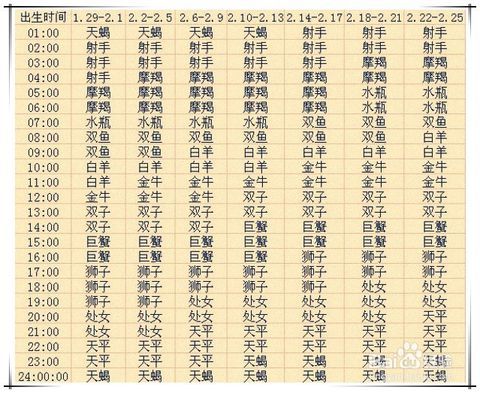 出生时间 1.29-2.1 2.2-2.5 2.6-2.9 2.10-2.13 2.14-2.17 2.18-2.21 2.22-2.25
01:00 天蝎 天蝎 天蝎 天蝎 射手 射手 射手
02:00 射手 射手 射手 射手 射手 射手 射手
03:00 射手 射手 射手 射手 射手 摩羯 摩羯
04:00 射手 摩羯 摩羯 摩羯 摩羯 摩羯 摩羯
05:00 摩羯 摩羯 摩羯 摩羯 摩羯 水瓶 水瓶
06:00 摩羯 摩羯 摩羯 摩羯 水瓶 水瓶 水瓶
07:00 水瓶 水瓶 水瓶 水瓶 双鱼 双鱼 双鱼
08:00 双鱼 双鱼 双鱼 双鱼 双鱼 双鱼 白羊
09:00 双鱼 双鱼 白羊 白羊 白羊 白羊 白羊
10:00 白羊 白羊 白羊 白羊 金牛 金牛 金牛
11:00 白羊 金牛 金牛 金牛 金牛 金牛 金牛
12:00 金牛 金牛 金牛 双子 双子 双子 双子
13:00 双子 双子 双子 双子 双子 双子 双子
14:00 双子 双子 双子 巨蟹 巨蟹 巨蟹 巨蟹
15:00 巨蟹 巨蟹 巨蟹 巨蟹 巨蟹 巨蟹 巨蟹
16:00 巨蟹 巨蟹 巨蟹 巨蟹 狮子 狮子 狮子
17:00 狮子 狮子 狮子 狮子 狮子 狮子 狮子
18:00 狮子 狮子 狮子 狮子 狮子 处女 处女
19:00 狮子 狮子 处女 处女 处女 处女 处女
20:00 处女 处女 处女 处女 处女 处女 天平
21:00 处女 处女 天平 天平 天平 天平 天平
22:00 天平 天平 天平 天平 天平 天平 天平
23:00 天平 天平 天平 天蝎 天蝎 天蝎 天蝎
24:00:00 天蝎 天蝎 天蝎 天蝎 天蝎 天蝎 天蝎